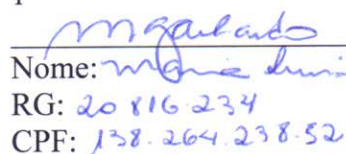 Nome: Maria
RG: 20 816 234
CPF: 138.264.238.52